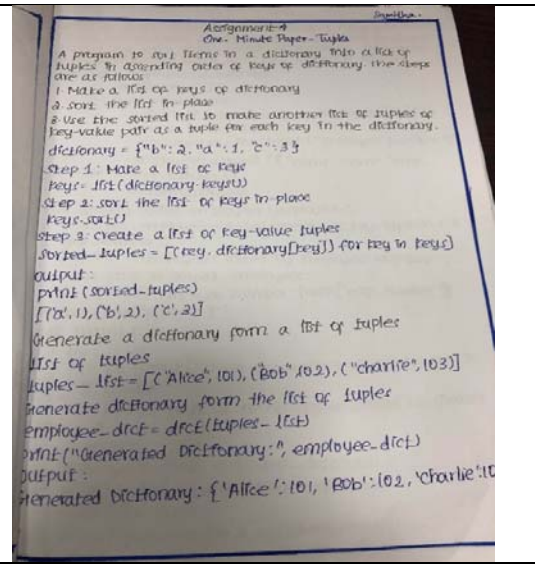 Assignment-4
One-Minute Paper-Tuples
A program to sort Items in a dictionary into a list of
tuples in ascending order of keys of dictionary. the steps
are as follows
1. Make a list of keys of dictionary
2. sort the list in-place
3. Use the sorted list to make another list of tuples of
key-value pair as a tuple for each key in the dictionary.
dictionary = {"b": 2, "a": 1, "c": 3}
Step 1: Make a list of keys
keys= list(dictionary.keys())
Step 2: sort the list of keys in-place
keys.sort()
Step 3: Create a list of key-value tuples
Sorted_tuples = [(key, dictionary[key]) for key in keys]
output:
print (sorted-tuples)
[('a', 1), ('b', 2), ('c', 3)]
Generate a dictionary form a list of tuples
List of tuples
tuples_list = [("Alice", 101), ("Bob" 102), ("charlie", 103)]
Generate dictionary form the list of tuples
employee_dict = dict(tuples_list)
print("Generated Dictionary:", employee_dict)
output:
Generated Dictionary: {'Alice':101, 'Bob':102, 'Charlie':10